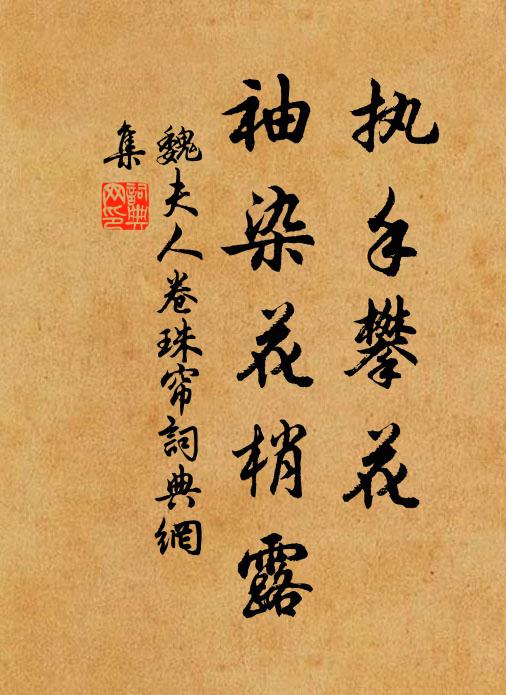 执手攀花
袖染花梢露
魏夫人卷珠帘词典網
集
詞典网印